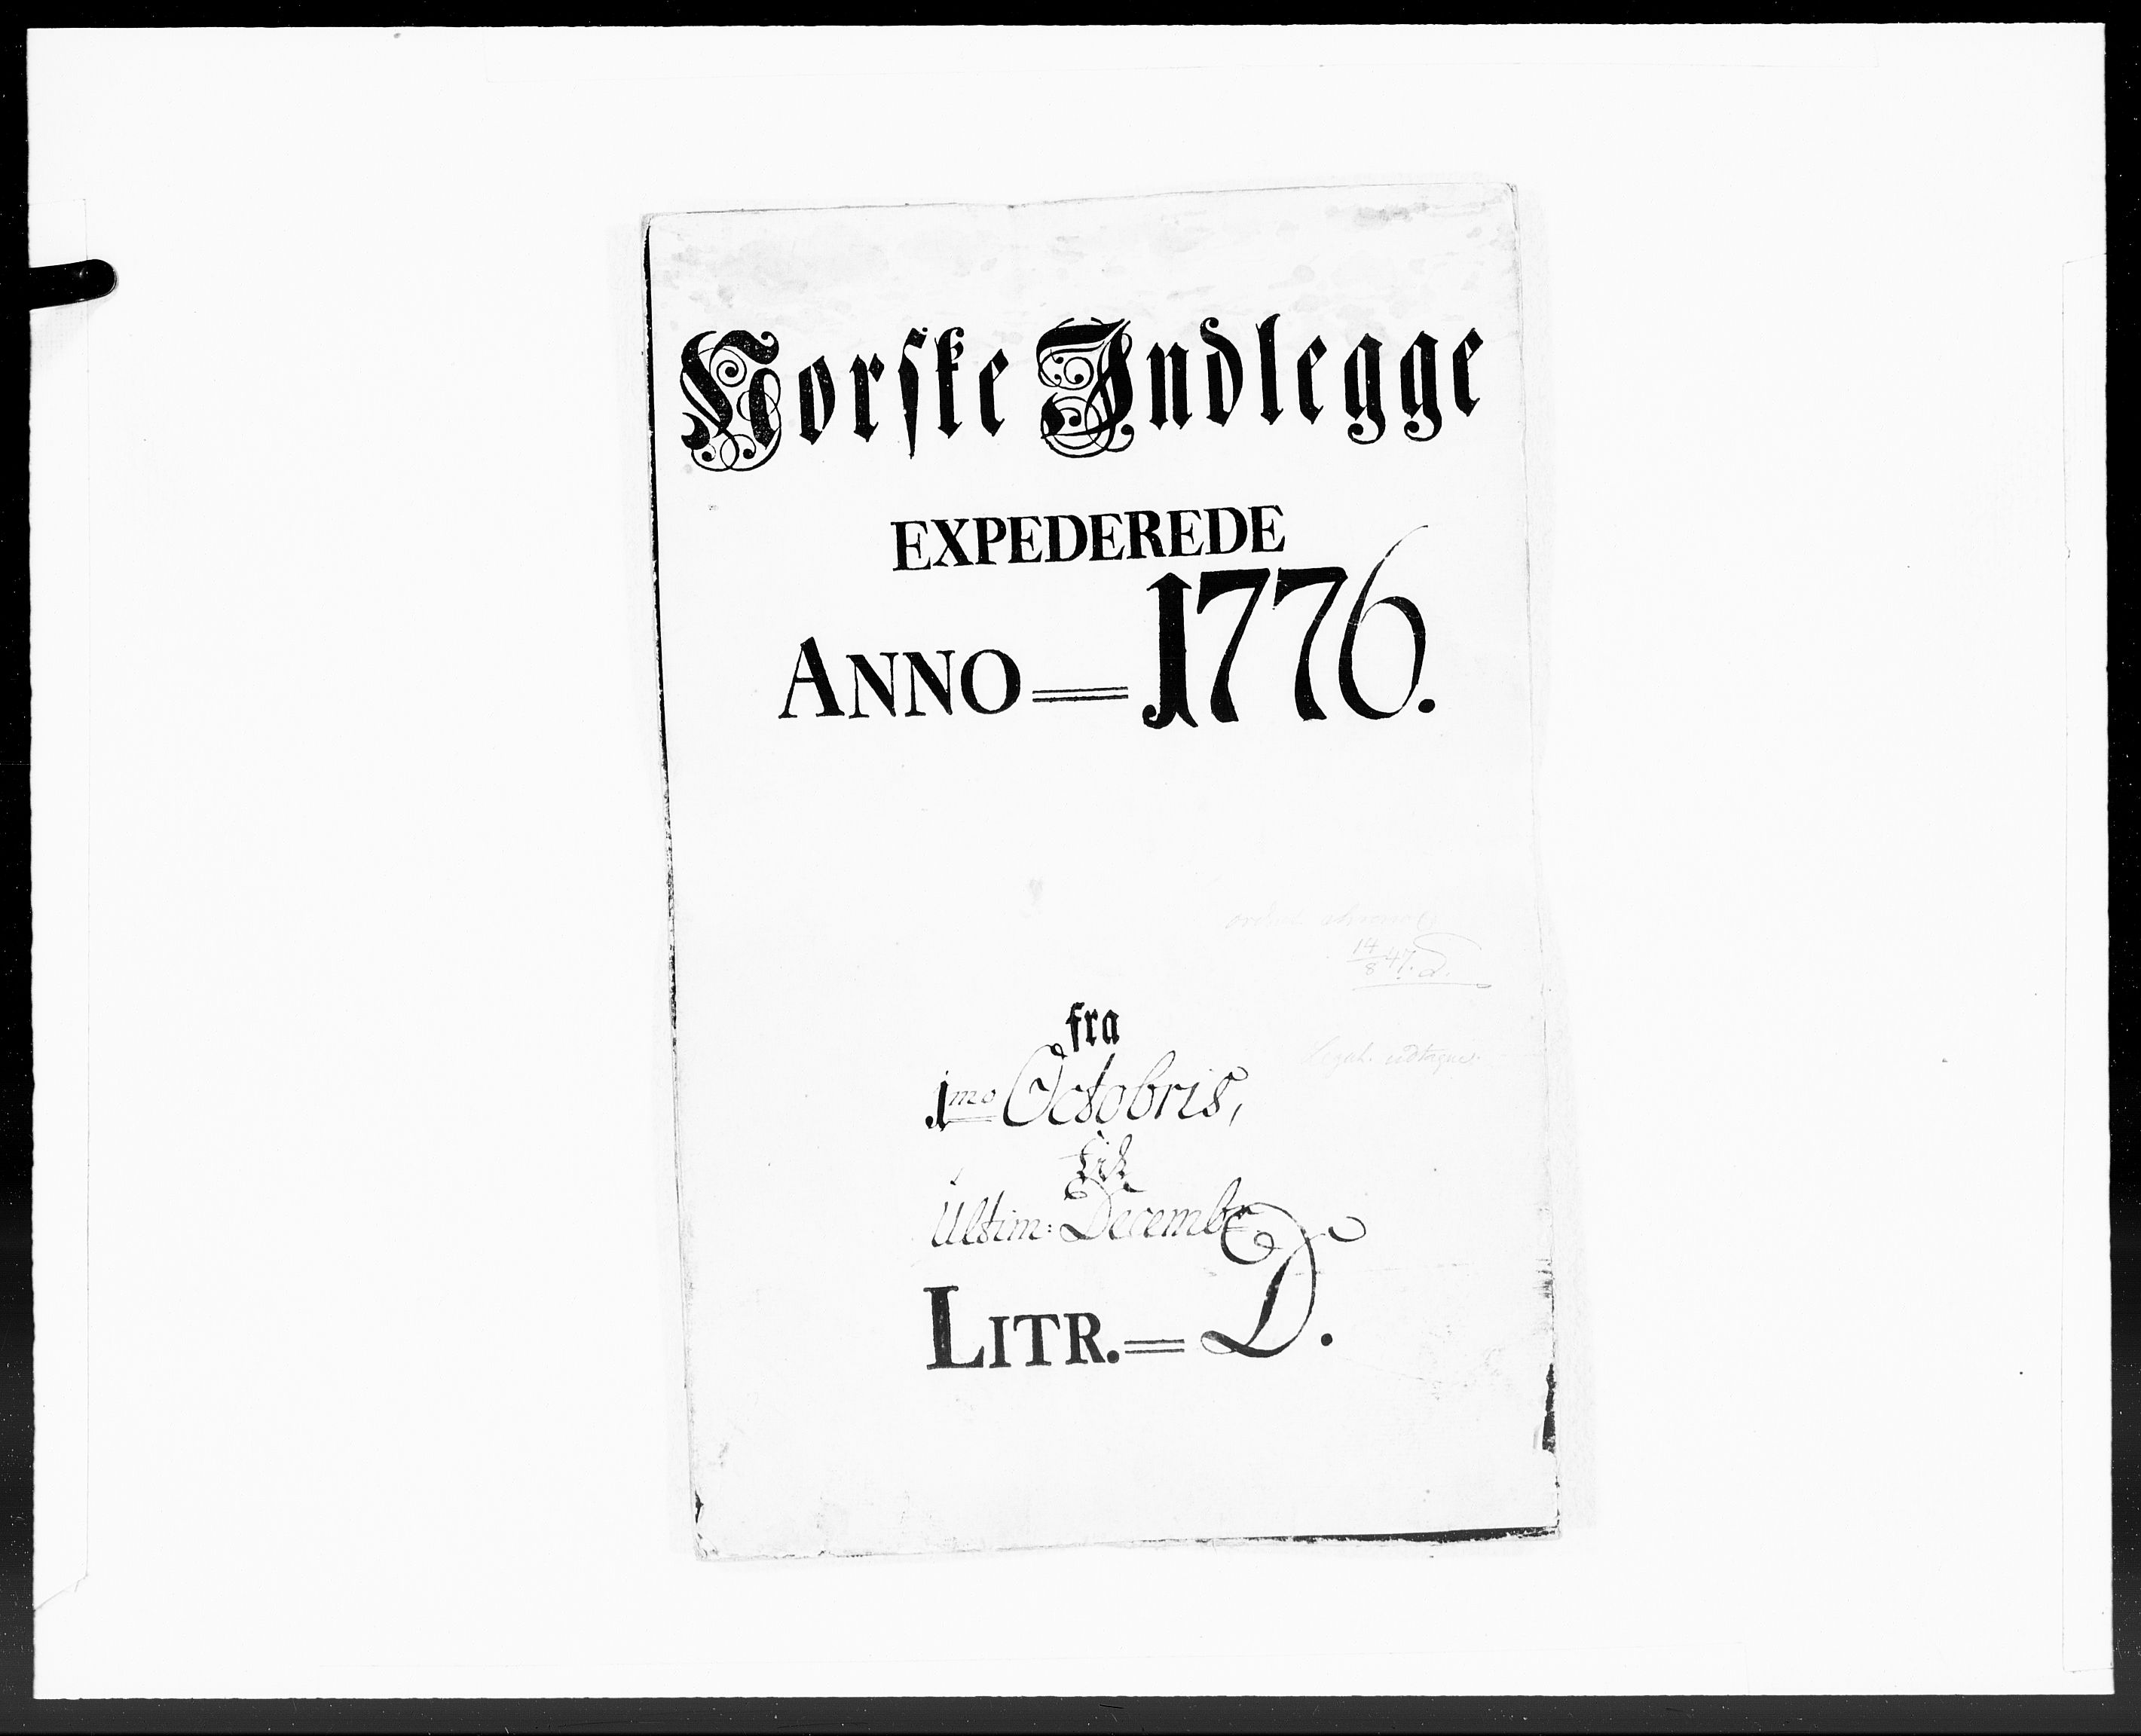 Norske Indlegge
EXPEDEREDE
ANNO = 1776.
14/8 47. D.
fra
1mo Octobris,
til
Ultim: Decembr
LITR. = D.